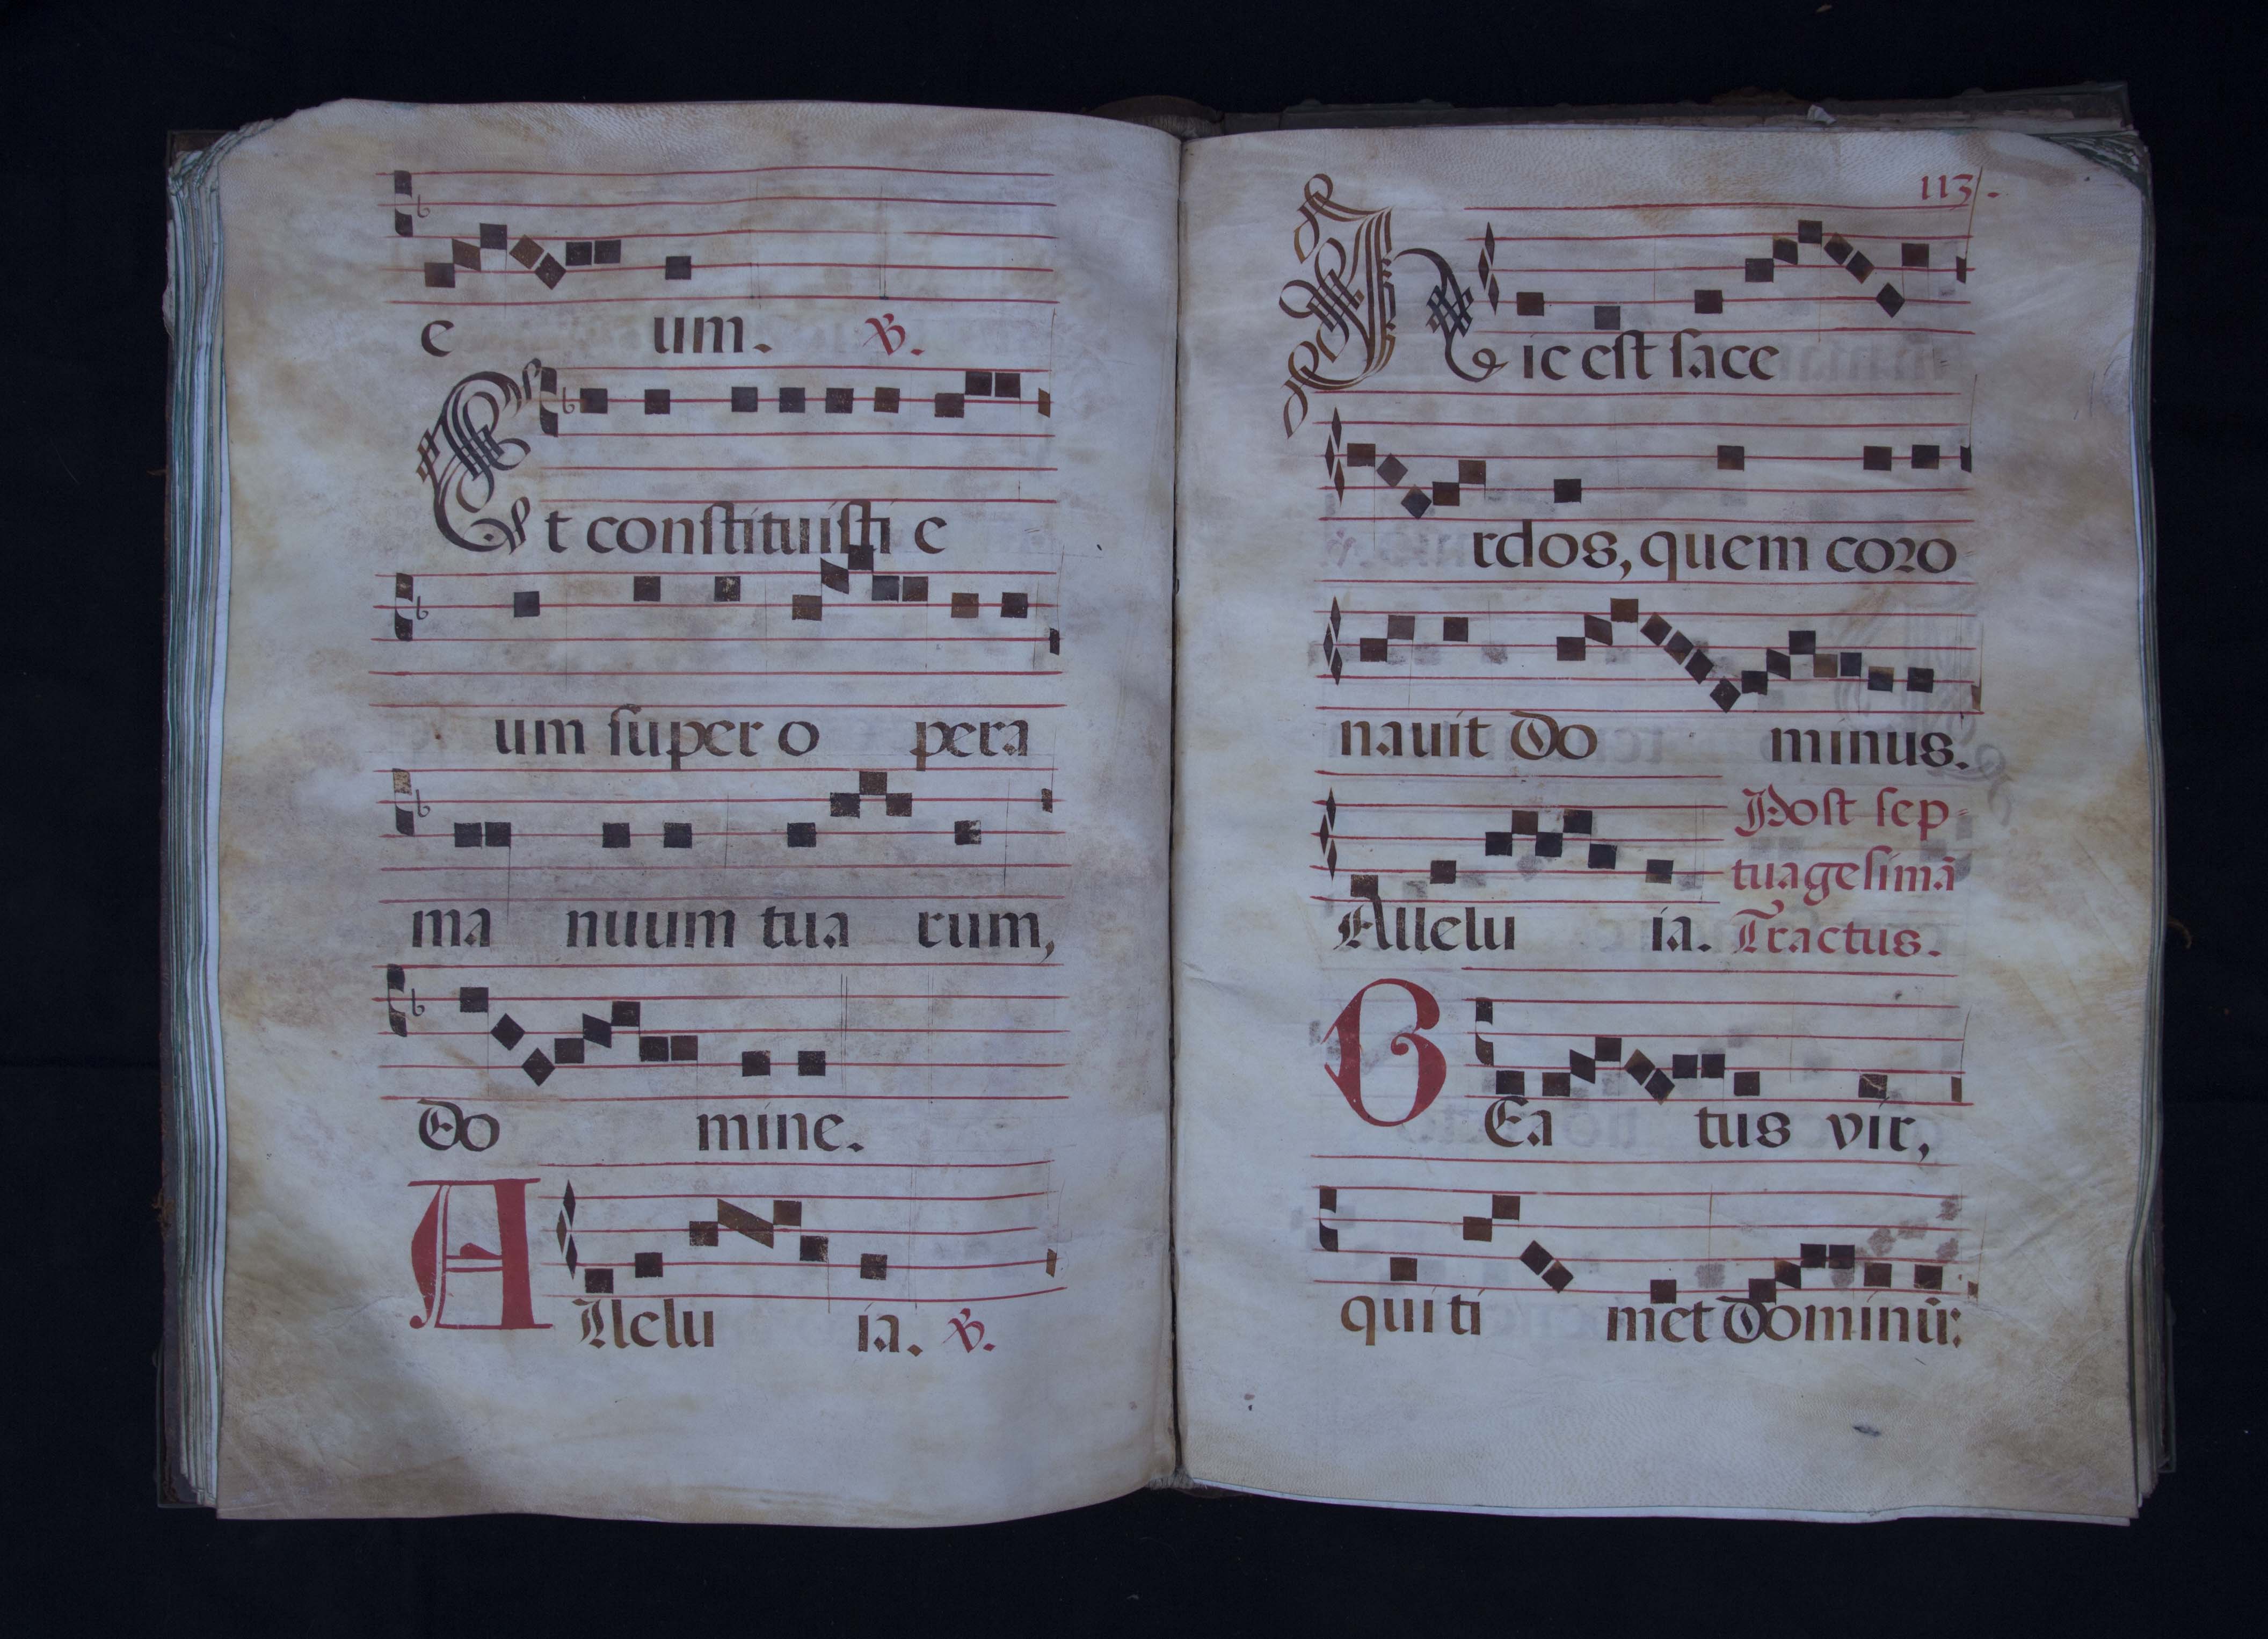 e um. ℣.
Et constituisti e
um super o pera
ma nuum tua rum,
Do mine.
Allelu ia. ℣.
113.
Hic est sace
rdos, quem coro
nauit Do minus.
Allelu ia. Post sep-
tuagesimã
Tractus.
BEa tus vir,
qui ti met Dominũ: